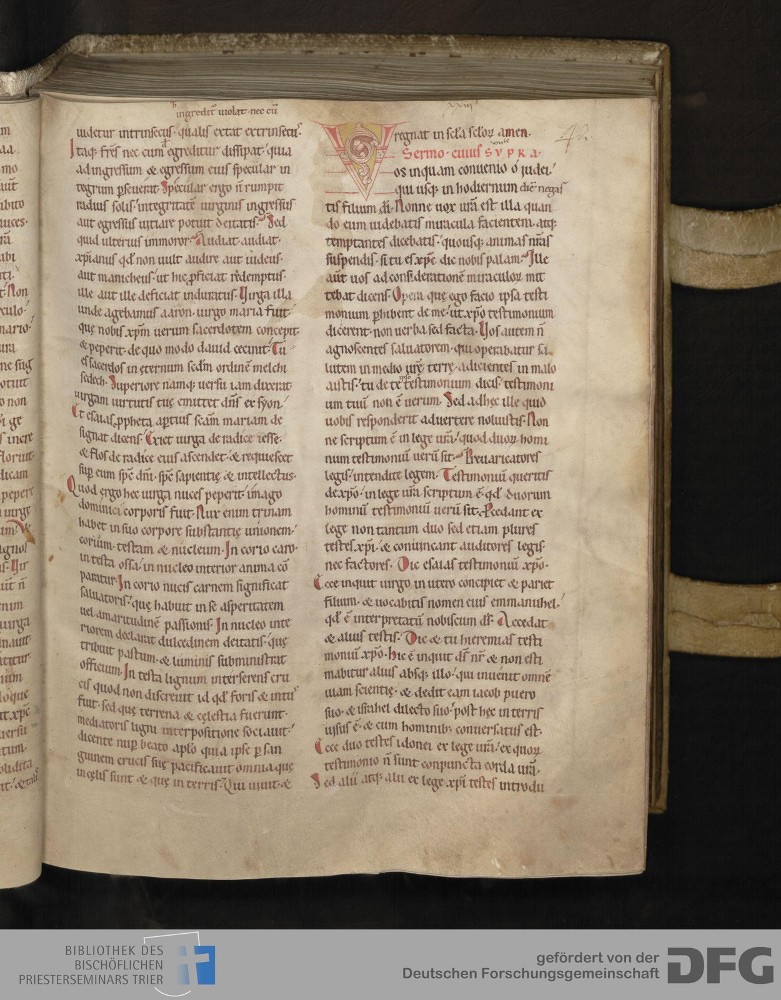 ingredit᷑ uiolat · nec cū
uidetur intrinsecus · qualis extat extrinsecus ·
Itaq; fr̄s nec cum egreditur dissipat · quia
ad ingressum & egressum eius specular in
tegrum ꝑseuerat · Specular ergo ñ rumpit
radius solis · integritatē uirginis ingressus
aut egressus uitiare poterit deitatis · Sed
quid ulterius immoror · Audiat audiat ·
xp̄ianus qd̄ non uult audire aut iudeus ·
aut manicheus · ut hic ꝓficiat redemptus ·
ille aut ille deficiat induratus · Virga illa
unde agebamus aaron · uirgo maria fuit ·
que nobis xp̄m uerum sacerdotem concepit
& peperit · de quo modo dauid cecinit · Tu
es sacerdos in ęternum sedm̄ ordinē melchi
sedech · Superiore namq; uersu iam dixerat
uirgam uirtutis tuę emittet dn̄s ex syon ·
Et esaias ꝓpheta aꝑtius sc̄am mariam de
signat dicens · Exiet uirga de radice iesse ·
& flos de radice eius ascendet · & requiescet
sup eum sp̄c dn̄i · sp̄c sapientię & intellectus ·
Quod ergo hec uirga nuces peperit · imago
dominici corporis fuit · Nux enim trinam
habet in suo corpore substantię unionem ·
corium · testam & nucleum · In corio caro ·
in testa ossa · in nucleo interior anima cō
paratur · In corio nucis carnem significat
saluatoris · quę habuit in se asperitatem
uel amaritudinē passionis · In nucleo inte
riorem declarat dulcedinem deitatis · quę
tribuit pastum · & luminis subministrat
officium · In testa lignum interserens cru
cis quod non discreuit id qd̄ foris & int᷒
fuit · sed quę terrena & cęlestia fuerunt ·
mediatoris ligni interpositione sociauit ·
dicente nuꝑ beato ap̄lo quia ipse ꝑ san
guinem crucis suę pacificauit omnia quę
in cęlis sunt & quę in terris · Qui uiuit · &
regnat in scl̄a sclōꝝ amen ·
Sermo · cuius SVPRA ·
Vos inquam conuenio ó iudei ·
qui usq; in hodiernum diē negas
tis filium dī · Nonne uox ur̄a est illa quan
do eum uidebatis miracula facientem · atq;
temptantes dicebatis · quousq; animas nr̄as
suspendis · si tu es xp̄c dic nobis palam · Ille
aūt uos ad considerationē miraculoꝝ mit
tebat dicens · Opera quę ego facio ipsa testi
monium ꝑhibent de me · ut xp̄o testimonium
dicerent non uerba sed facta · Vos autem ñ
agnoscentes saluatorem · qui operabatur sa
lutem in medio ur̄ę terrę · adicientes in malo
aistis · tu de te testimonium dicis · testimoni
um tuū non ē uerum · Sed ad hęc ille quid
uobis responderit aduertere noluistis · Non
ne scriptum ē in lege ur̄a · quod duoꝝ homi
num testimoniū uerū sit · Preuaricatores
legis · intendite legem · Testimoniū queritis
de xp̄o · in lege ur̄a scriptum ē · qd̄ duorum
hominū testimoniū uerū sit · Ꝓcedant ex
lege non tantum duo sed etiam plures
testes xp̄i · & conuincant auditores legis ·
nec factores · Dic esaias testimoniū xp̄o ·
Ecce inquit uirgo in utero concipiet & pariet
filium · & uocabitis nomen eius emmanuhel ·
qd̄ ē interpretatū nobiscum dī · Accedat
& alius testis · Dic & tu hieremias testi
moniū xp̄o · Hic ē inquit d̄s nr̄ · & non esti
mabitur alius absq; illo · qui inuenit omnē
uiam scientię · & dedit eam iacob puero
suo · & israhel dilecto suo · post hęc in terris
uisus ē · & cum hominib; conuersatus est ·
Ecce duo testes idonei ex lege ur̄a · ex quoꝝ
testimonio ñ sunt conpuncta corda ur̄a ·
Sed alii atq; alii ex lege xp̄i testes introdu
BIBLIOTHEK DES
BISCHÖFLICHEN
PRIESTERSEMINARS TRIER
gefördert von der
Deutschen Forschungsgemeinschaft
DFG